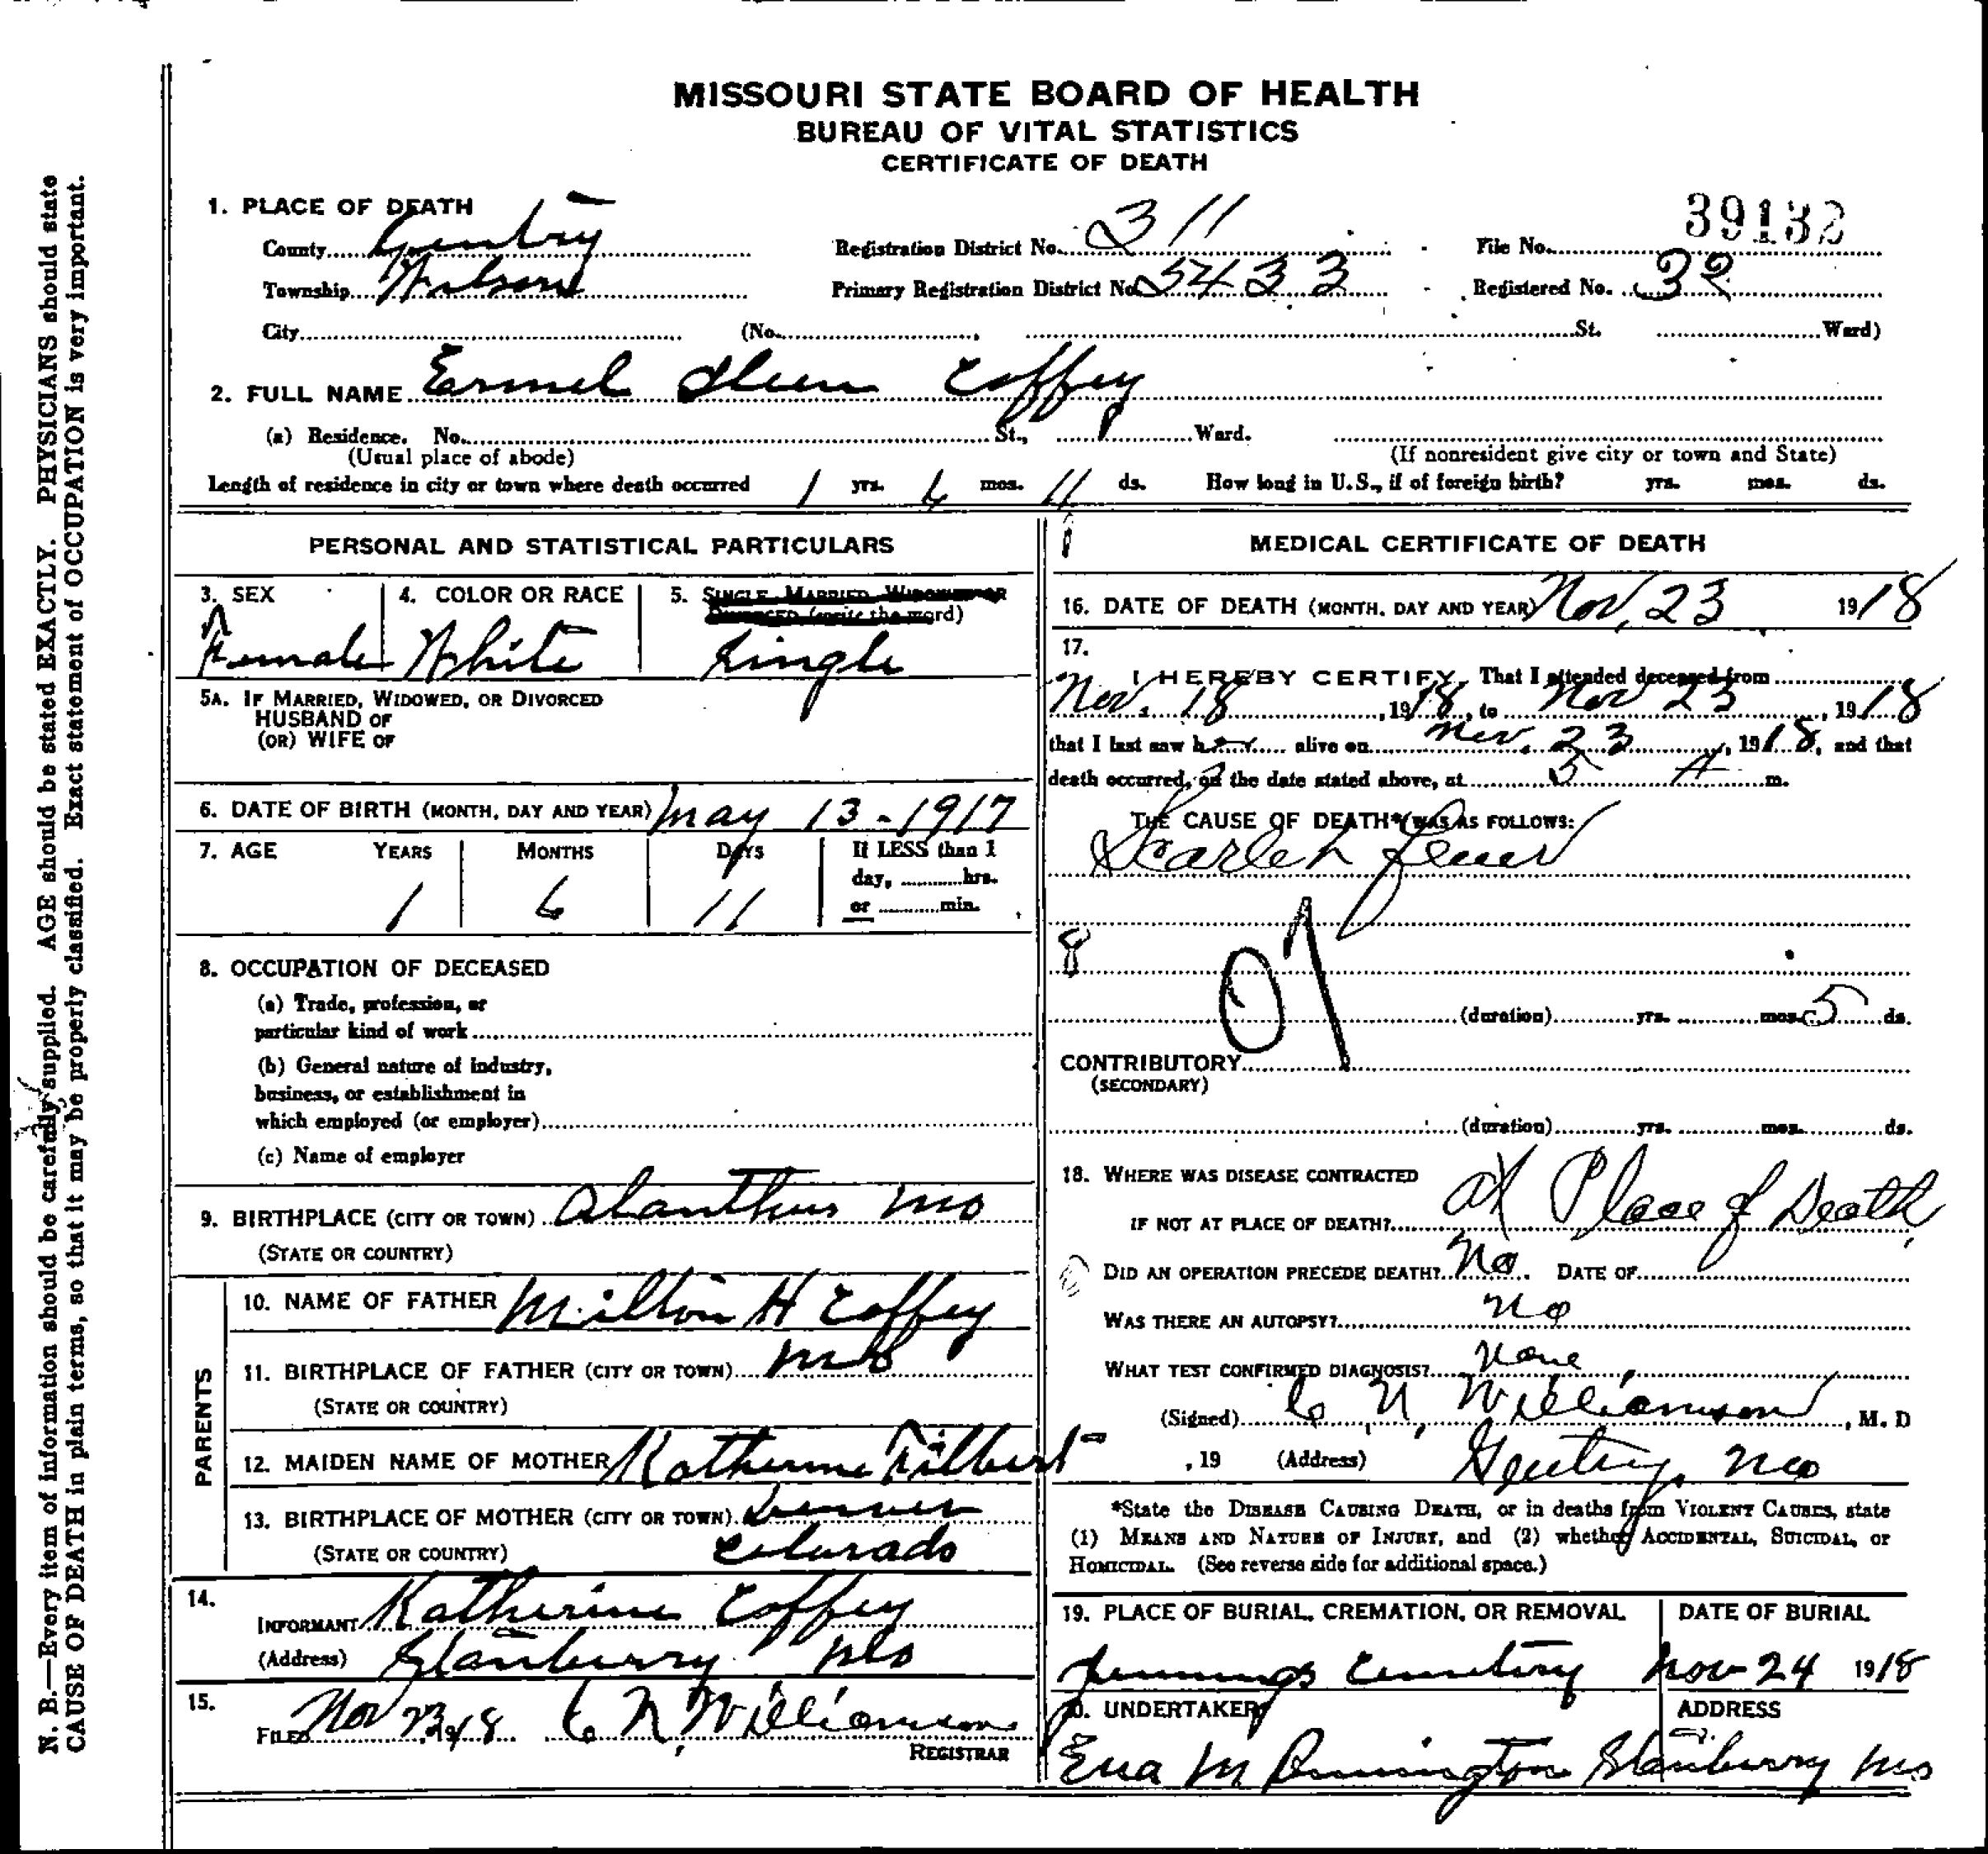 MISSOURI STATE BOARD OF HEALTH
BUREAU OF VITAL STATISTICS
CERTIFICATE OF DEATH
1. PLACE OF DEATH
County Gentry Registration District No. 311 File No. 39132
Township Wilson Primary Registration District No. 5433 Registered No. 32
City (No. , St. Ward)
2. FULL NAME Ermel Coffey
(a) Residence. No. St., Ward.
(Usual place of abode) (If nonresident give city or town and State)
Length of residence in city or town where death occurred 1 yrs. 6 mos. 11 ds. How long in U.S., if of foreign birth? yrs. mos. ds.
PERSONAL AND STATISTICAL PARTICULARS
3. SEX 4. COLOR OR RACE 5. SINGLE, MARRIED, WIDOWED OR
DIVORCED (write the word)
Female White Single
5A. IF MARRIED, WIDOWED, OR DIVORCED
HUSBAND OF
(OR) WIFE OF
6. DATE OF BIRTH (MONTH, DAY AND YEAR) May 13-1917
7. AGE YEARS MONTHS DAYS If LESS than 1
day, hrs.
1 6 11 or min.
8. OCCUPATION OF DECEASED
(a) Trade, profession, or
particular kind of work
(b) General nature of industry,
business, or establishment in
which employed (or employer)
(c) Name of employer
9. BIRTHPLACE (CITY OR TOWN) Alanthus Mo
(STATE OR COUNTRY)
PARENTS
10. NAME OF FATHER Milton H Coffey
11. BIRTHPLACE OF FATHER (CITY OR TOWN) Mo
(STATE OR COUNTRY)
12. MAIDEN NAME OF MOTHER Katherine Filbert
13. BIRTHPLACE OF MOTHER (CITY OR TOWN) Denver
(STATE OR COUNTRY) Colorado
14.
INFORMANT Katherine Coffey
(Address) Stanberry Mo
15.
FILED Nov 23, 1918 C N, Williamson
REGISTRAR
MEDICAL CERTIFICATE OF DEATH
16. DATE OF DEATH (MONTH, DAY AND YEAR) Nov, 23 1918
17.
I HEREBY CERTIFY, That I attended deceased from
Nov. 18, 1918, to Nov 23, 1918
that I last saw her alive on Nov. 23, 1918, and that
death occurred, on the date stated above, at 5 A m.
THE CAUSE OF DEATH* WAS AS FOLLOWS:
Scarlet fever
8
07
(duration) yrs. mos. 5 ds.
CONTRIBUTORY
(SECONDARY)
(duration) yrs. mos. ds.
18. WHERE WAS DISEASE CONTRACTED
IF NOT AT PLACE OF DEATH? at Place of Death
DID AN OPERATION PRECEDE DEATH? No. DATE OF
WAS THERE AN AUTOPSY? no
WHAT TEST CONFIRMED DIAGNOSIS? None
(Signed) C N, Williamson, M. D
, 19 (Address) Gentry, Mo
*State the DISEASE CAUSING DEATH, or in deaths from VIOLENT CAUSES, state
(1) MEANS AND NATURE OF INJURY, and (2) whether ACCIDENTAL, SUICIDAL, or
HOMICIDAL. (See reverse side for additional space.)
19. PLACE OF BURIAL, CREMATION, OR REMOVAL DATE OF BURIAL
Jennings Cemetery Nov 24 1918
20. UNDERTAKER ADDRESS
M Stanberry Mo
N. B.—Every item of information should be carefully supplied. AGE should be stated EXACTLY. PHYSICIANS should state
CAUSE OF DEATH in plain terms, so that it may be properly classified. Exact statement of OCCUPATION is very important.